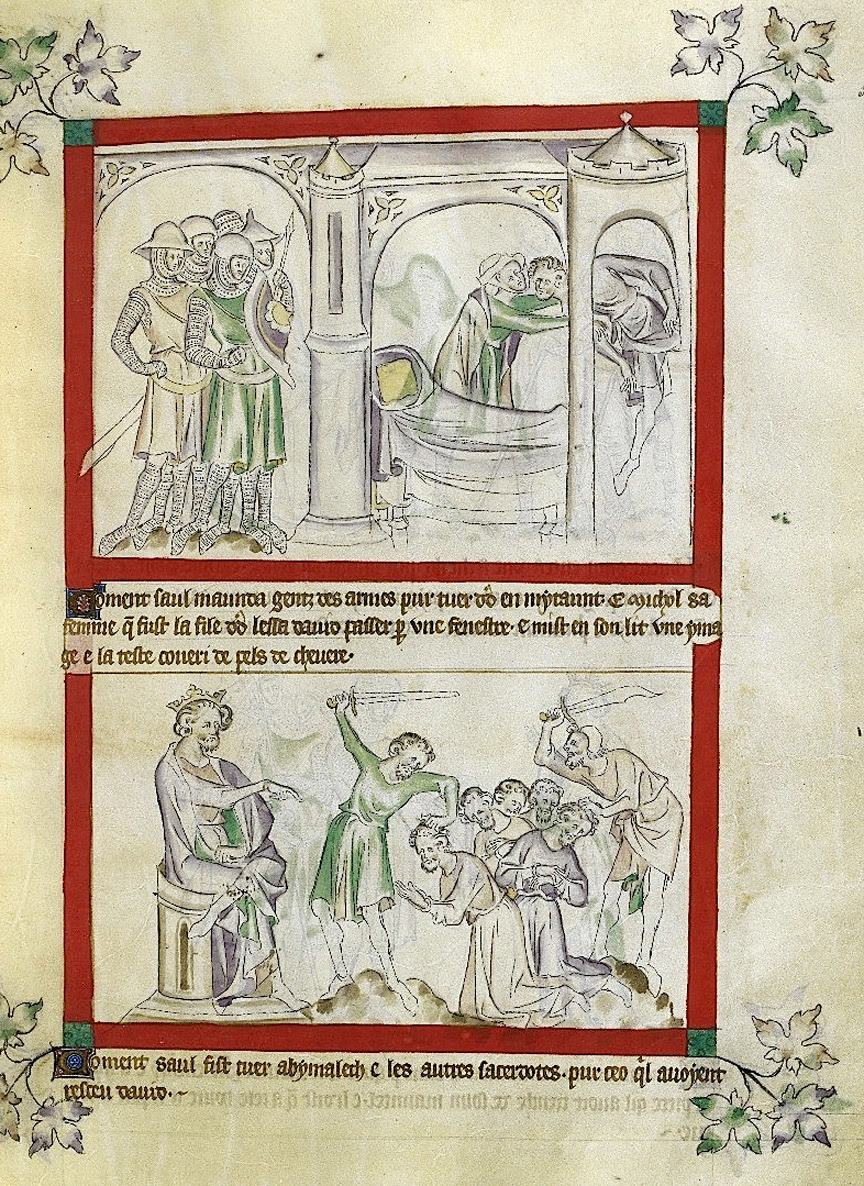 Coment saul maunda gentz des armes pur tuer dd en mytaunt. E Michol sa
femme q̄ fust la file dd lessa dauid passer p̱ vne fenestre. e mist en son lit vne yma
ge e la teste coueri de pels de cheuere.
Coment saul fist tuer abymalech e les autres sacerdotes. pur ceo q̄l auoyent
resceu dauid.